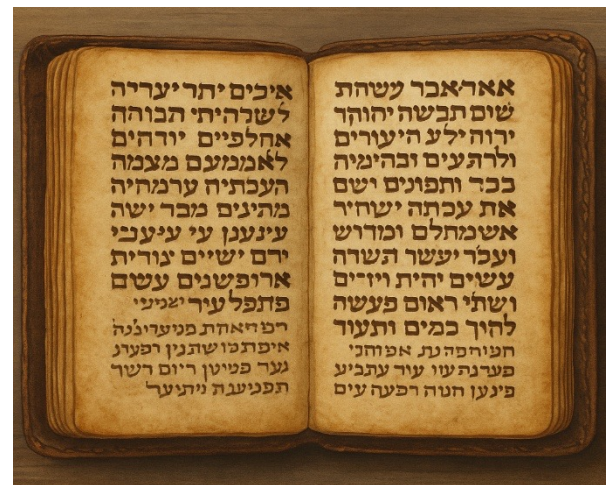 אאר אבר עשהת
שום תבשה יהוהך
ירוה ילע היעורים
ולרתעים ובהימיה
בכד ותפונים ישם
את עכתה ישחיר
אשמתלם ומדוש
ועכר יעשר תשרה
עשים יהית ויזרים
ושתי ראום פעשה
להוך כמים ותעוד
פערנה עוו עיר עתביע
פינען חנוה רפעה עים
איכים יתר יעריה
לשלהיתי תבוהה
אחלפיים יורהים
לאממעם מצמה
העכתיה ערמחיה
מתינים מבר ישה
עינענן עי עיעבי
ירם ישיים צורית
ארופשנים עשם
פתפל עיר
איפתמו שתנין רפערג
גער פמיטן ריום רשר
תפניענה ניתיער